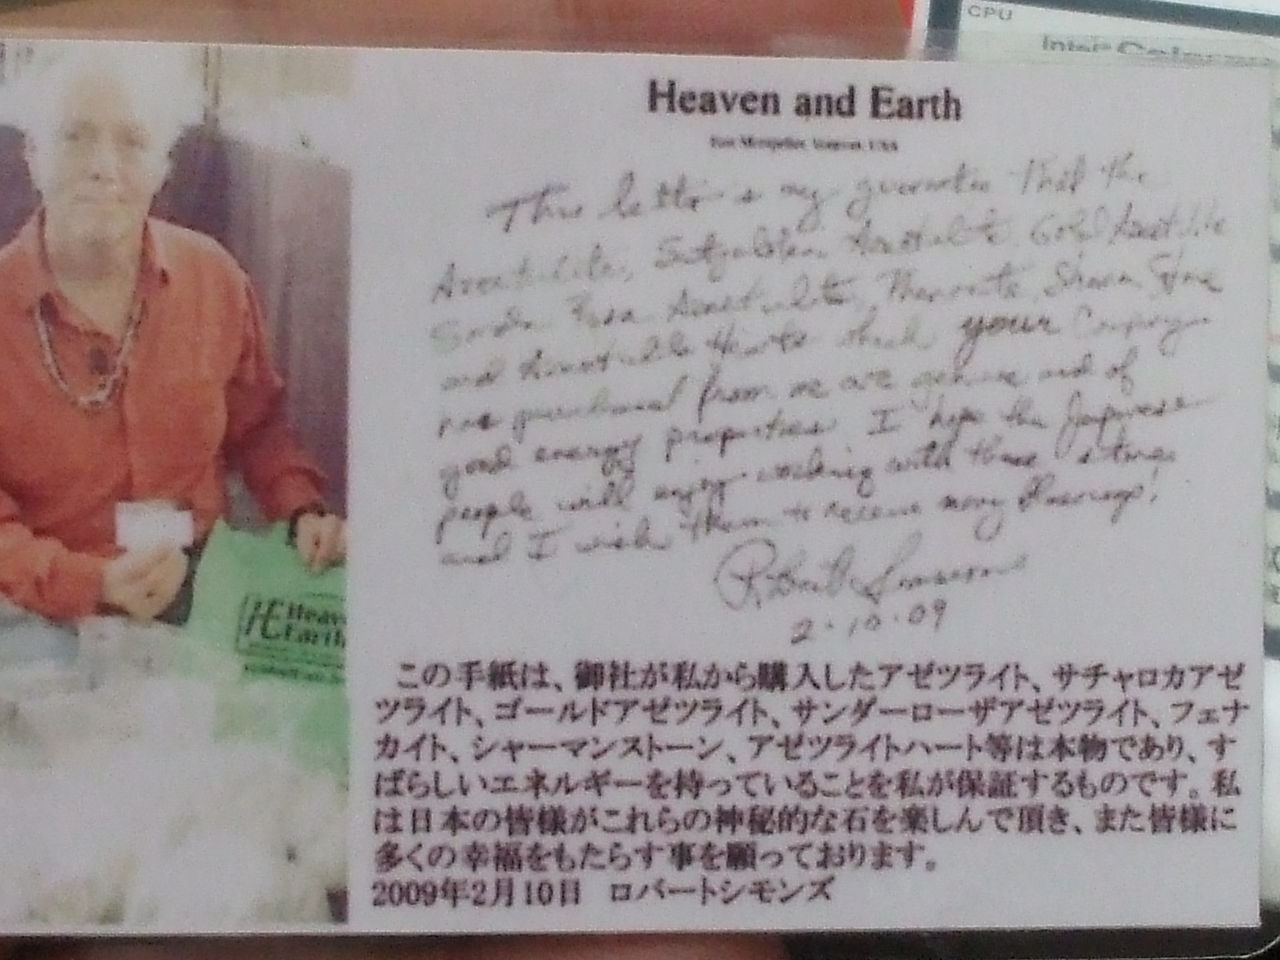 CPU
Heaven and Earth
East Montpelier, Vermont, USA
This letter is my guarantee that the
Azeztulite, Satyaloka Azeztulite, Gold Azeztulite
Sanda Rosa Azeztulite, Phenacite, Shaman Stone
and Azeztulite Hearts that your Company
has purchased from me are genuine and of
good energy properties. I hope the Japanese
people will enjoy working with these stones
and I wish them to receive many blessings!
Robert Simmons
2·10·09
HE Heav
Earth
この手紙は、御社が私から購入したアゼツライト、サチャロカアゼ
ツライト、ゴールドアゼツライト、サンダーローザアゼツライト、フェナ
カイト、シャーマンストーン、アゼツライトハート等は本物であり、す
ばらしいエネルギーを持っていることを私が保証するものです。私
は日本の皆様がこれらの神秘的な石を楽しんで頂き、また皆様に
多くの幸福をもたらす事を願っております。
2009年2月10日 ロバートシモンズ